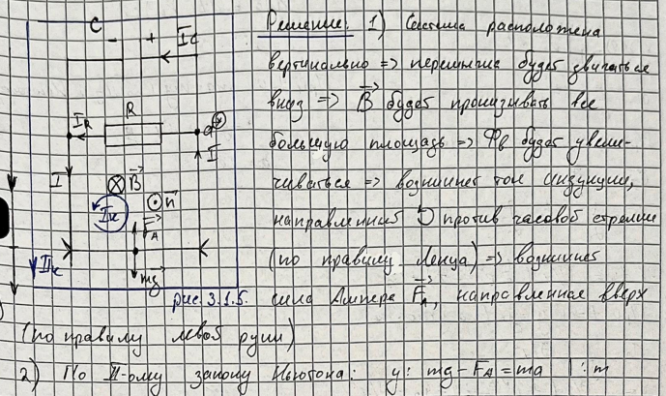 C
- +
I_C
I_R
R
I
I
⊗ B⃗
⊙ n⃗
F⃗_A
mg⃗
рис. 3.1.5.
Решение: 1) Система расположена
вертикально => перемычка будет двигаться
вниз => B⃗ будет пронизывать все
большую площадь => Φ_B будет увели-
чиваться => возникнет ток индукции,
направленный ↺ против часовой стрелки
(по правилу Ленца) => возникнет
сила Ампера F⃗_A, направленная вверх
(по правилу левой руки)
2) По II-ому закону Ньютона: y: mg - F_A = ma | : m